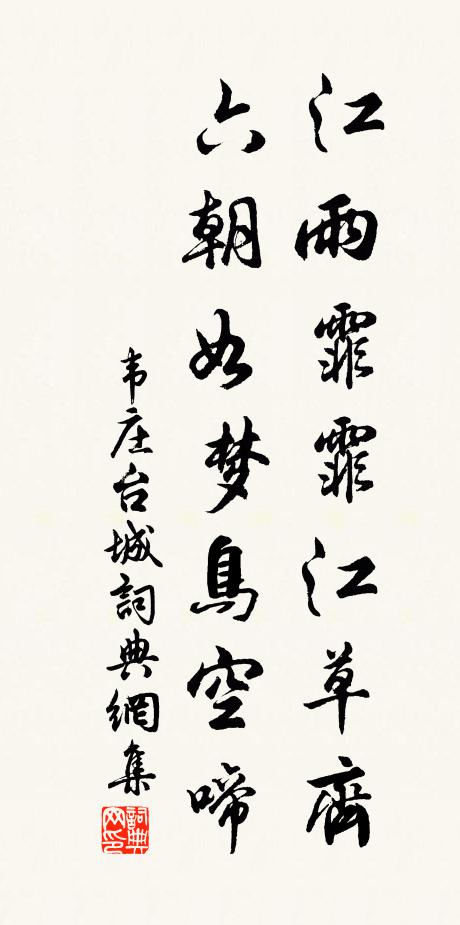 江雨霏霏江草齊
六朝如梦鳥空啼
韦庄台城詞典網集
詞典网印